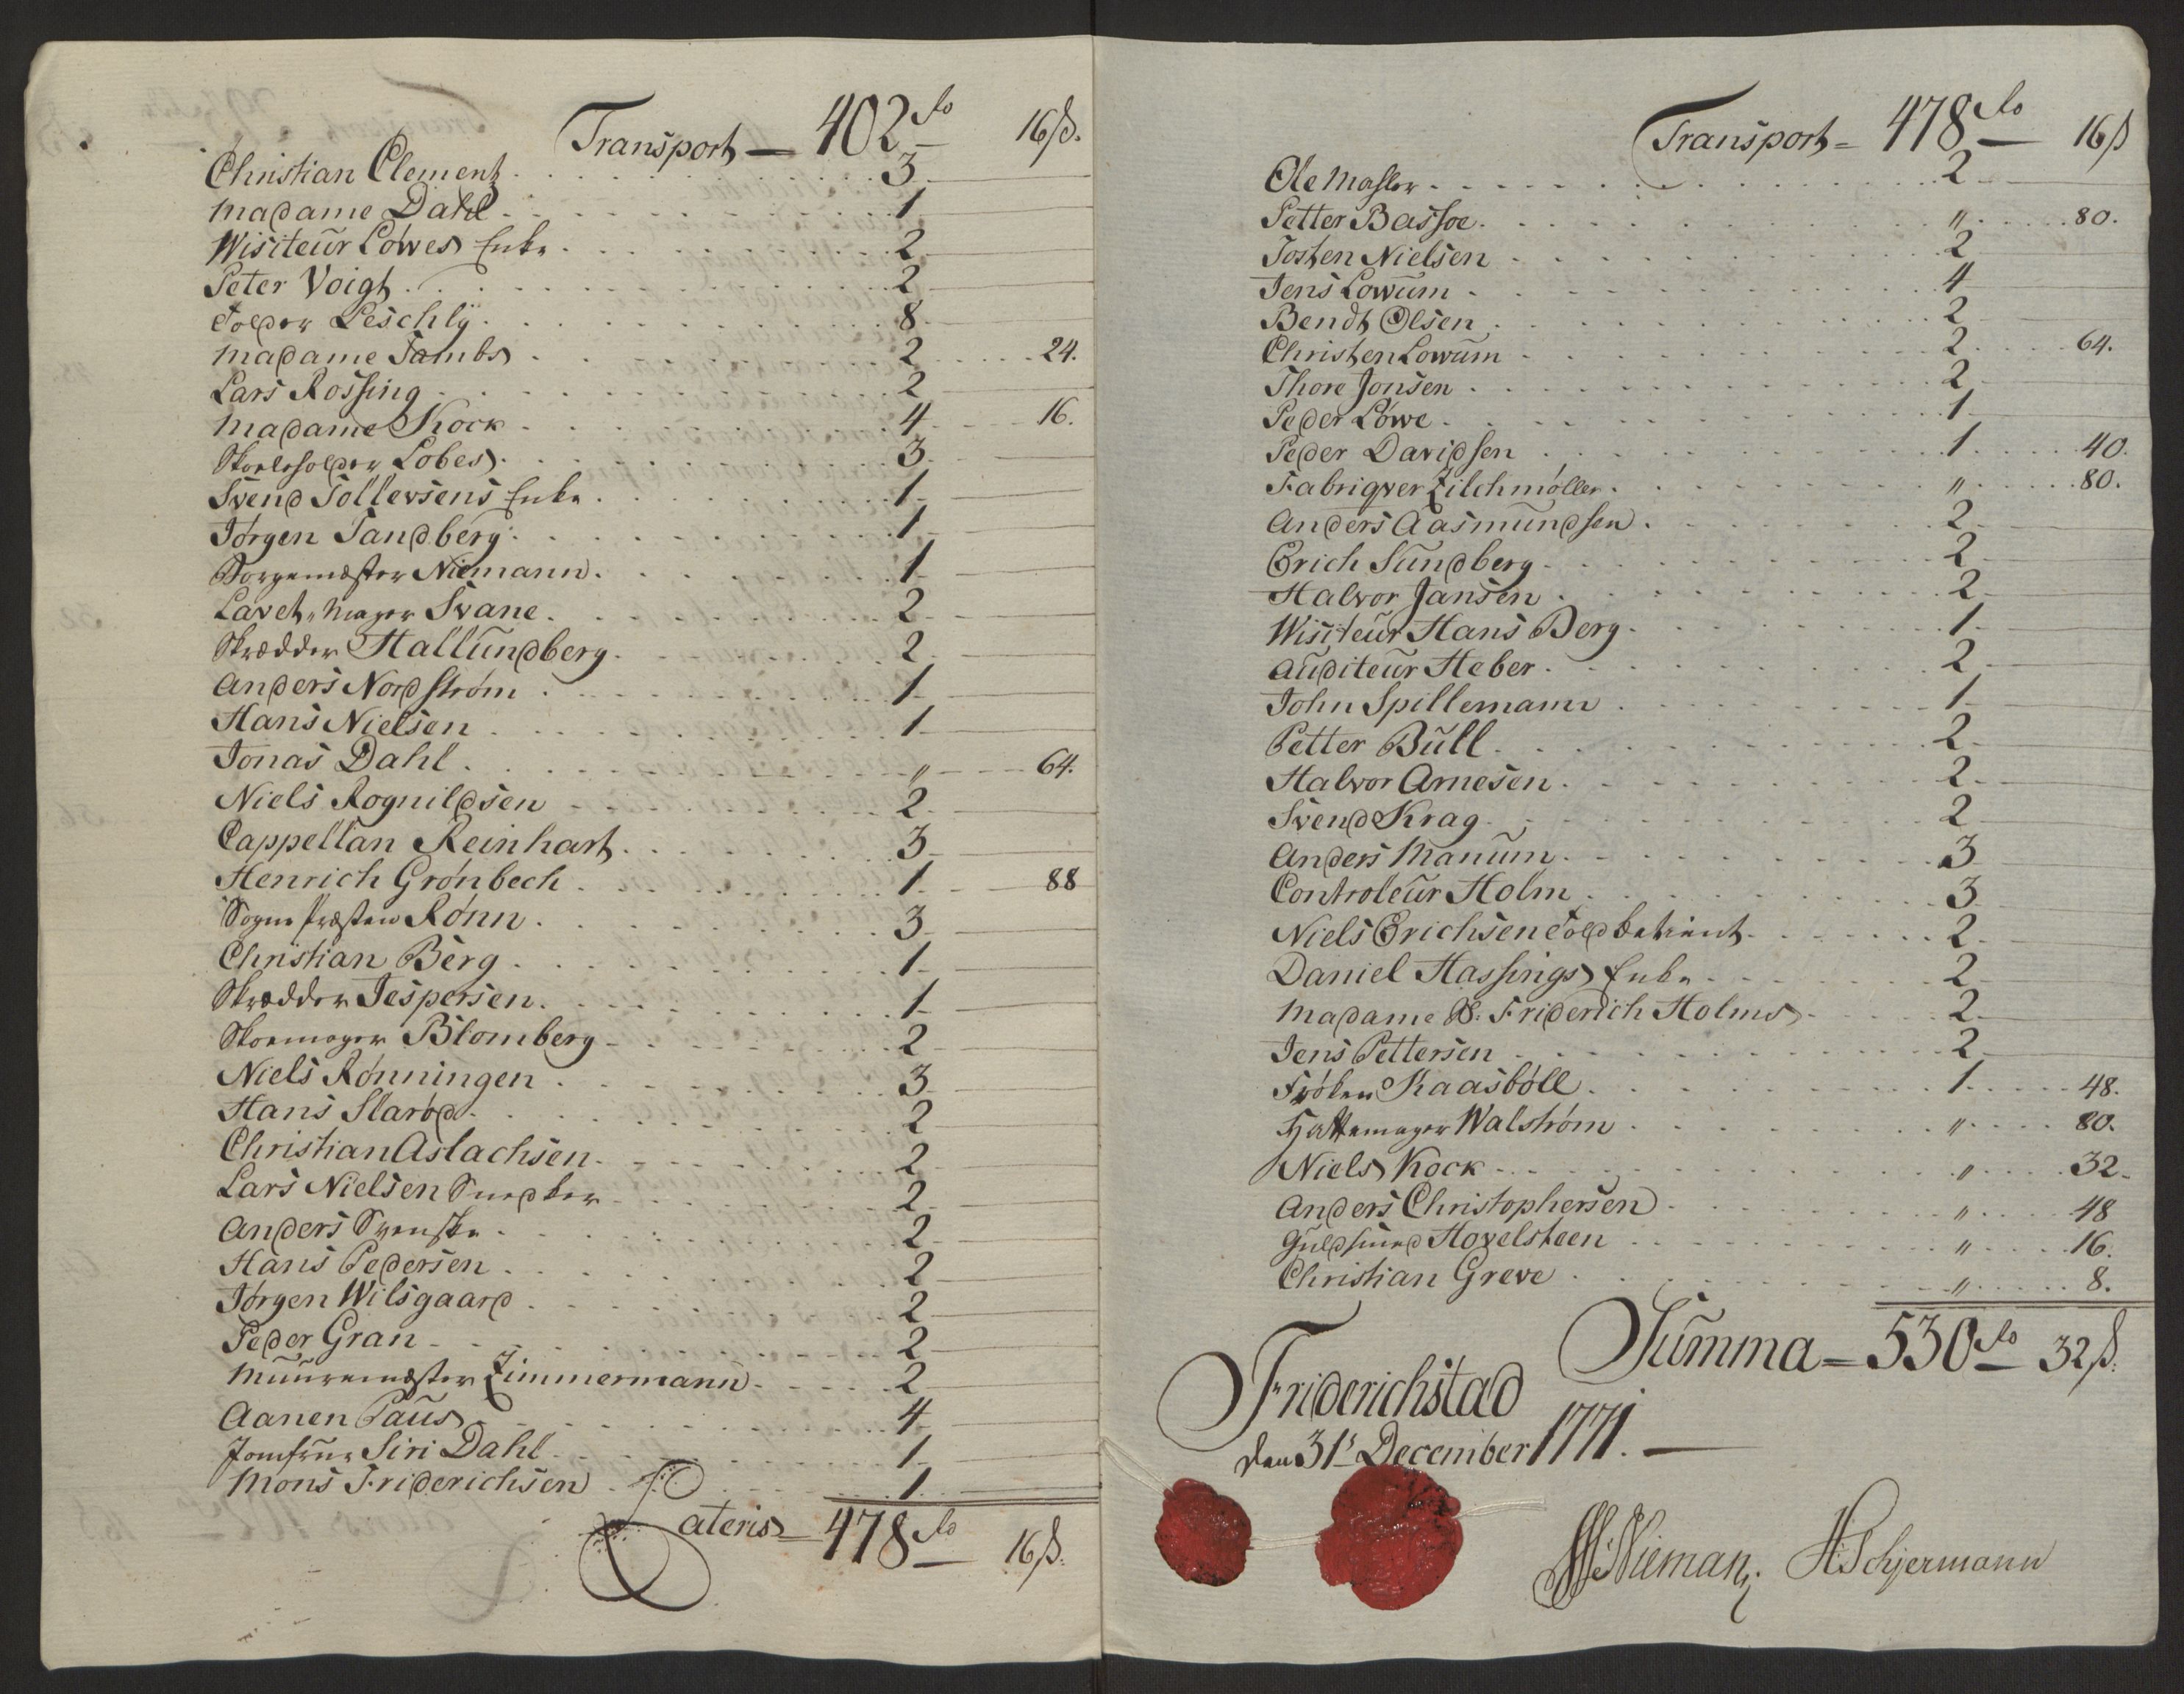 Transport — 402 rdo 16 ß.
Christian Clement . . . 3
Madame Dahl . . . 1
Wisiteur Löwes Enke . . . 2
Peter Voigt . . . 2
Tolder Leschly . . . 8
Madame Jambs . . . 2 . . . 24.
Lars Rossing . . . 2
Madame Kock . . . 4 . . . 16.
Skoeleholder Lobes . . . 3
Svend Tollevsens Enke . . . 1
Jörgen Sandberg . . . 1
Borgemæster Niemann . . . 1
Lavet-mager Svane . . . 2
Skrædder Hallundberg . . . 2
Anders Nordström . . . 1
Hans Nielsen . . . 1
Jonas Dahl . . . " . . . 64.
Niels Rognildsen . . . 2
Cappellan Reinhart . . . 3
Henrich Grönbech . . . 1 . . . 88
Sogne Præsten Rönn . . . 3
Christian Berg . . . 1
Skrædder Jespersen . . . 1
Skoemager Blomberg . . . 2
Niels Rönningen . . . 3
Hans Slaröd . . . 2
Christian Aslachsen . . . 2
Lars Nielsen Snedker . . . 2
Anders Svenske . . . 2
Hans Pedersen . . . 2
Jörgen Wilsgaard . . . 2
Peder Gran . . . 2
Muuremæster Zimmermann . . . 2
Aanen Paus . . . 4
Jomfrue Siri Dahl . . . 1
Mons Friderichsen . . . 1
Lateris — 478 rdo 16 ß.
Transport = 478 rdo 16 ß
Ole Mahler . . . 2
Petter Bassoe . . . " . . . 80.
Josten Nielsen . . . 2
Jens Lowum . . . 4
Bendt Olsen . . . 2
Christen Lowum . . . 2 . . . 64.
Thore Jonsen . . . 2
Peder Löwe . . . 1
Peder Davidsen . . . 1 . . . 40.
Fabriqver Zilchmöller . . . " . . . 80.
Anders Aasmundsen . . . 2
Erich Sundberg . . . 2
Halvor Jansen . . . 2
Wisiteur Hans Berg . . . 1
Auditeur Heber . . . 2
John Spillemann . . . 1
Petter Bull . . . 2
Halvor Arnesen . . . 2
Svend Krag . . . 2
Anders Manum . . . 3
Controleur Holm . . . 3
Niels Erichsen Toldbetient . . . 2
Daniel Hassings Enke . . . 2
Madame Friderich Holms . . . 2
Jens Pettersen . . . 2
Fröken Kaasböll . . . 1 . . . 48.
Hattemager Walström . . . " . . . 80.
Niels Kock . . . " . . . 32.
Anders Christophersen . . . " . . . 48
Guldsmed Hovelsteen . . . " . . . 16.
Christian Greve . . . " . . . 8.
Summa = 530 rdo 32 ß.
Friderichstad
den 31s December 1771. —
Nieman. H Schjermann